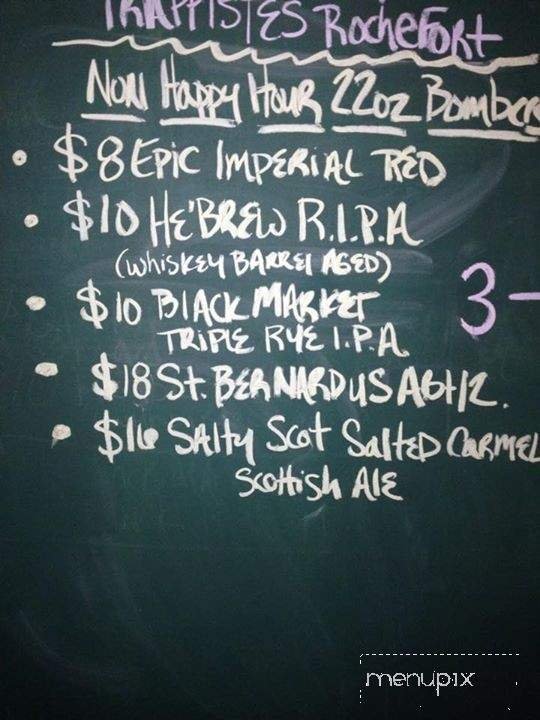 TRAPPISTES ROCHEFORT
NON HAPPY HOUR 22OZ BOMBERS
$8 EPIC IMPERIAL RED
$10 HE'BREW R.I.P.A
(WHISKEY BARREL AGED)
$10 BLACK MARKET
TRIPLE RYE I.P.A
3-
$18 ST. BERNARDUS Abt 12.
$16 SALTY SCOT SALTED CARMEL
SCOTTISH ALE
menupix